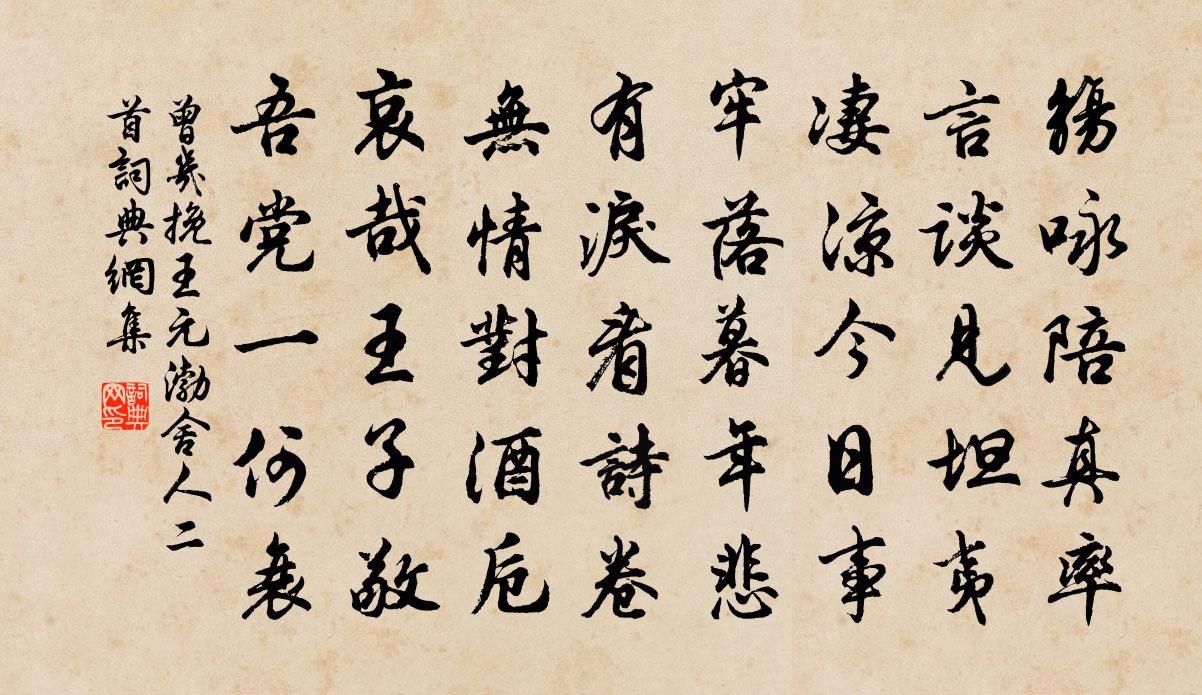 觴咏陪真率
言談見坦夷
凄涼今日事
牢落暮年悲
有淚看詩卷
無情對酒卮
哀哉王子敬
吾党一何衰
曾幾挽王元渤舍人二
首詞典網集
詞典網印